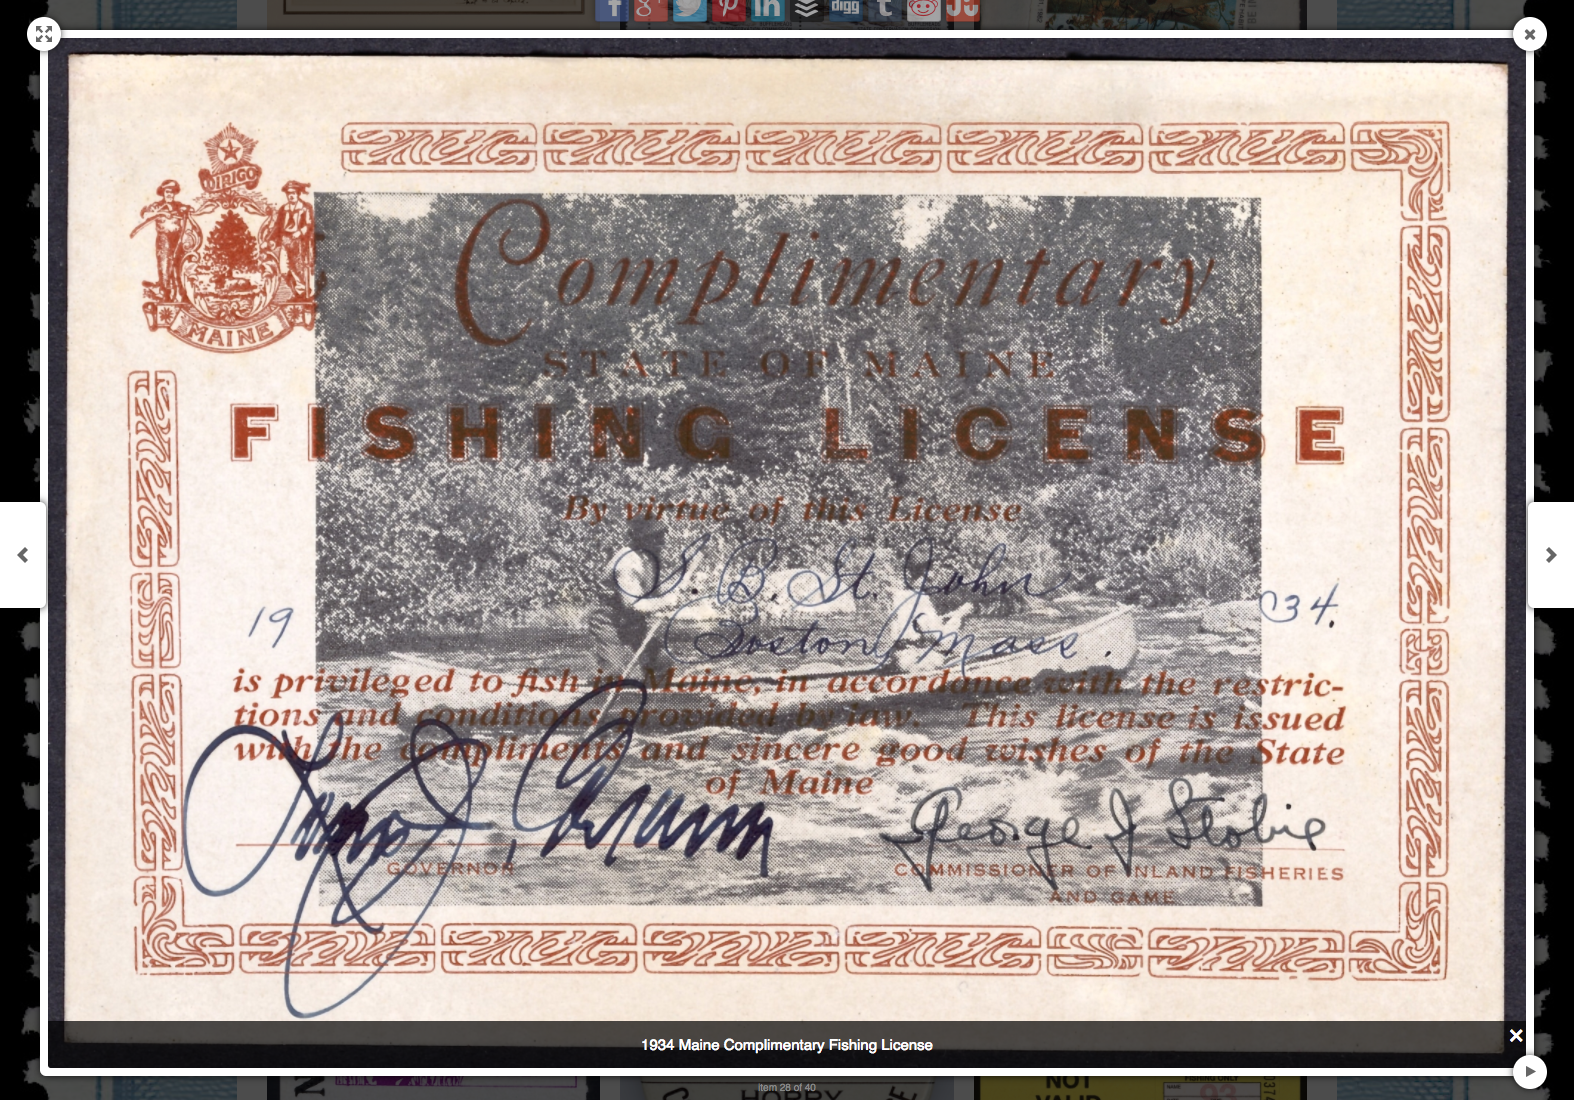 DIRIGO
MAINE
Complimentary
STATE OF MAINE
FISHING LICENSE
By virtue of this License
S. B. St. John
19 34.
Boston, Mass.
is privileged to fish in Maine, in accordance with the restric-
tions and conditions provided by law. This license is issued
with the compliments and sincere good wishes of the State
of Maine
George J Stobie
GOVERNOR
COMMISSIONER OF INLAND FISHERIES
AND GAME
1934 Maine Complimentary Fishing License
Item 28 of 40
NOT
HOBBY